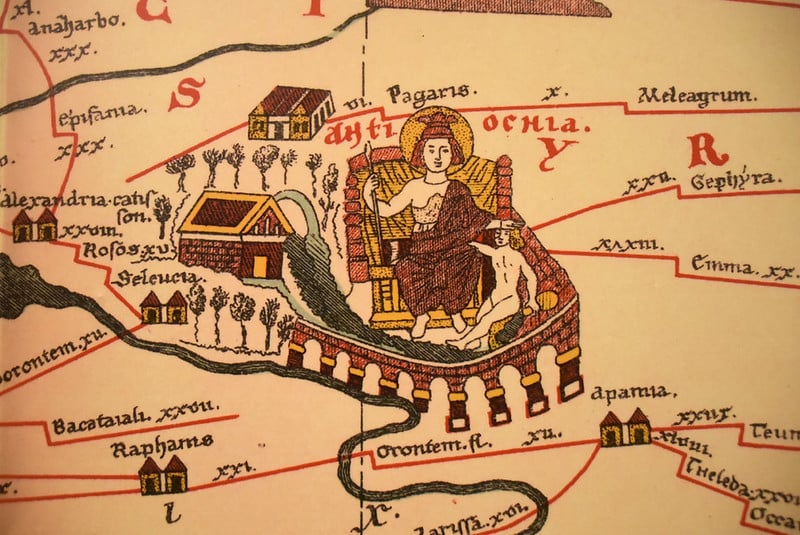 C I
xl.
anaharbo.
xxx.
S
vi. Pagaris. x. Meleagrum.
epifania.
xxx.
anti ochia.
Y R
xxv. Gephyra.
alexandria. catis
son.
xxviii.
Rosos. xv.
Seleucia.
xxxiii. Emma. xx.
orontem. xv.
apamia.
Bacataiali. xxvii.
xxix.
Raphanis
orontem. fl. xv.
xlviii.
Theleda. xxvi
xxi.
Occa
l
r.
larissa. xvi.